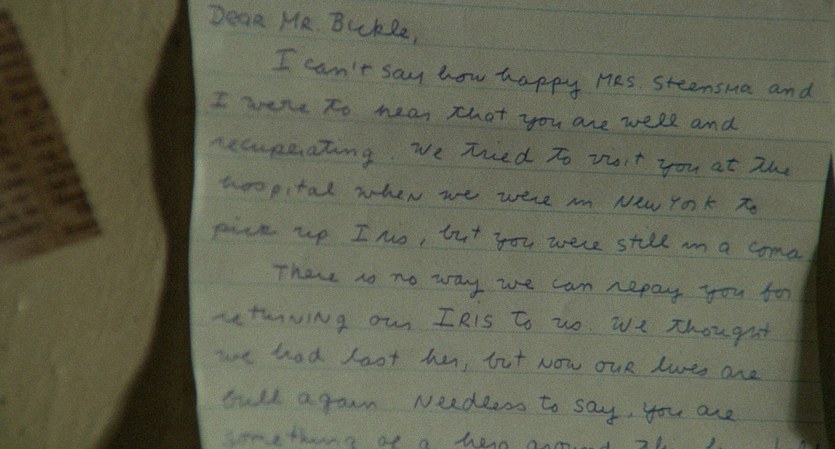 Dear Mr. Bickle,
I can't say how happy Mrs. Steensma and
I were to hear that you are well and
recuperating. We tried to visit you at the
hospital when we were in New York to
pick up Iris, but you were still in a coma
There is no way we can repay you for
returning our Iris to us. We thought
we had lost her, but now our lives are
full again Needless to say, you are
something of a hero around